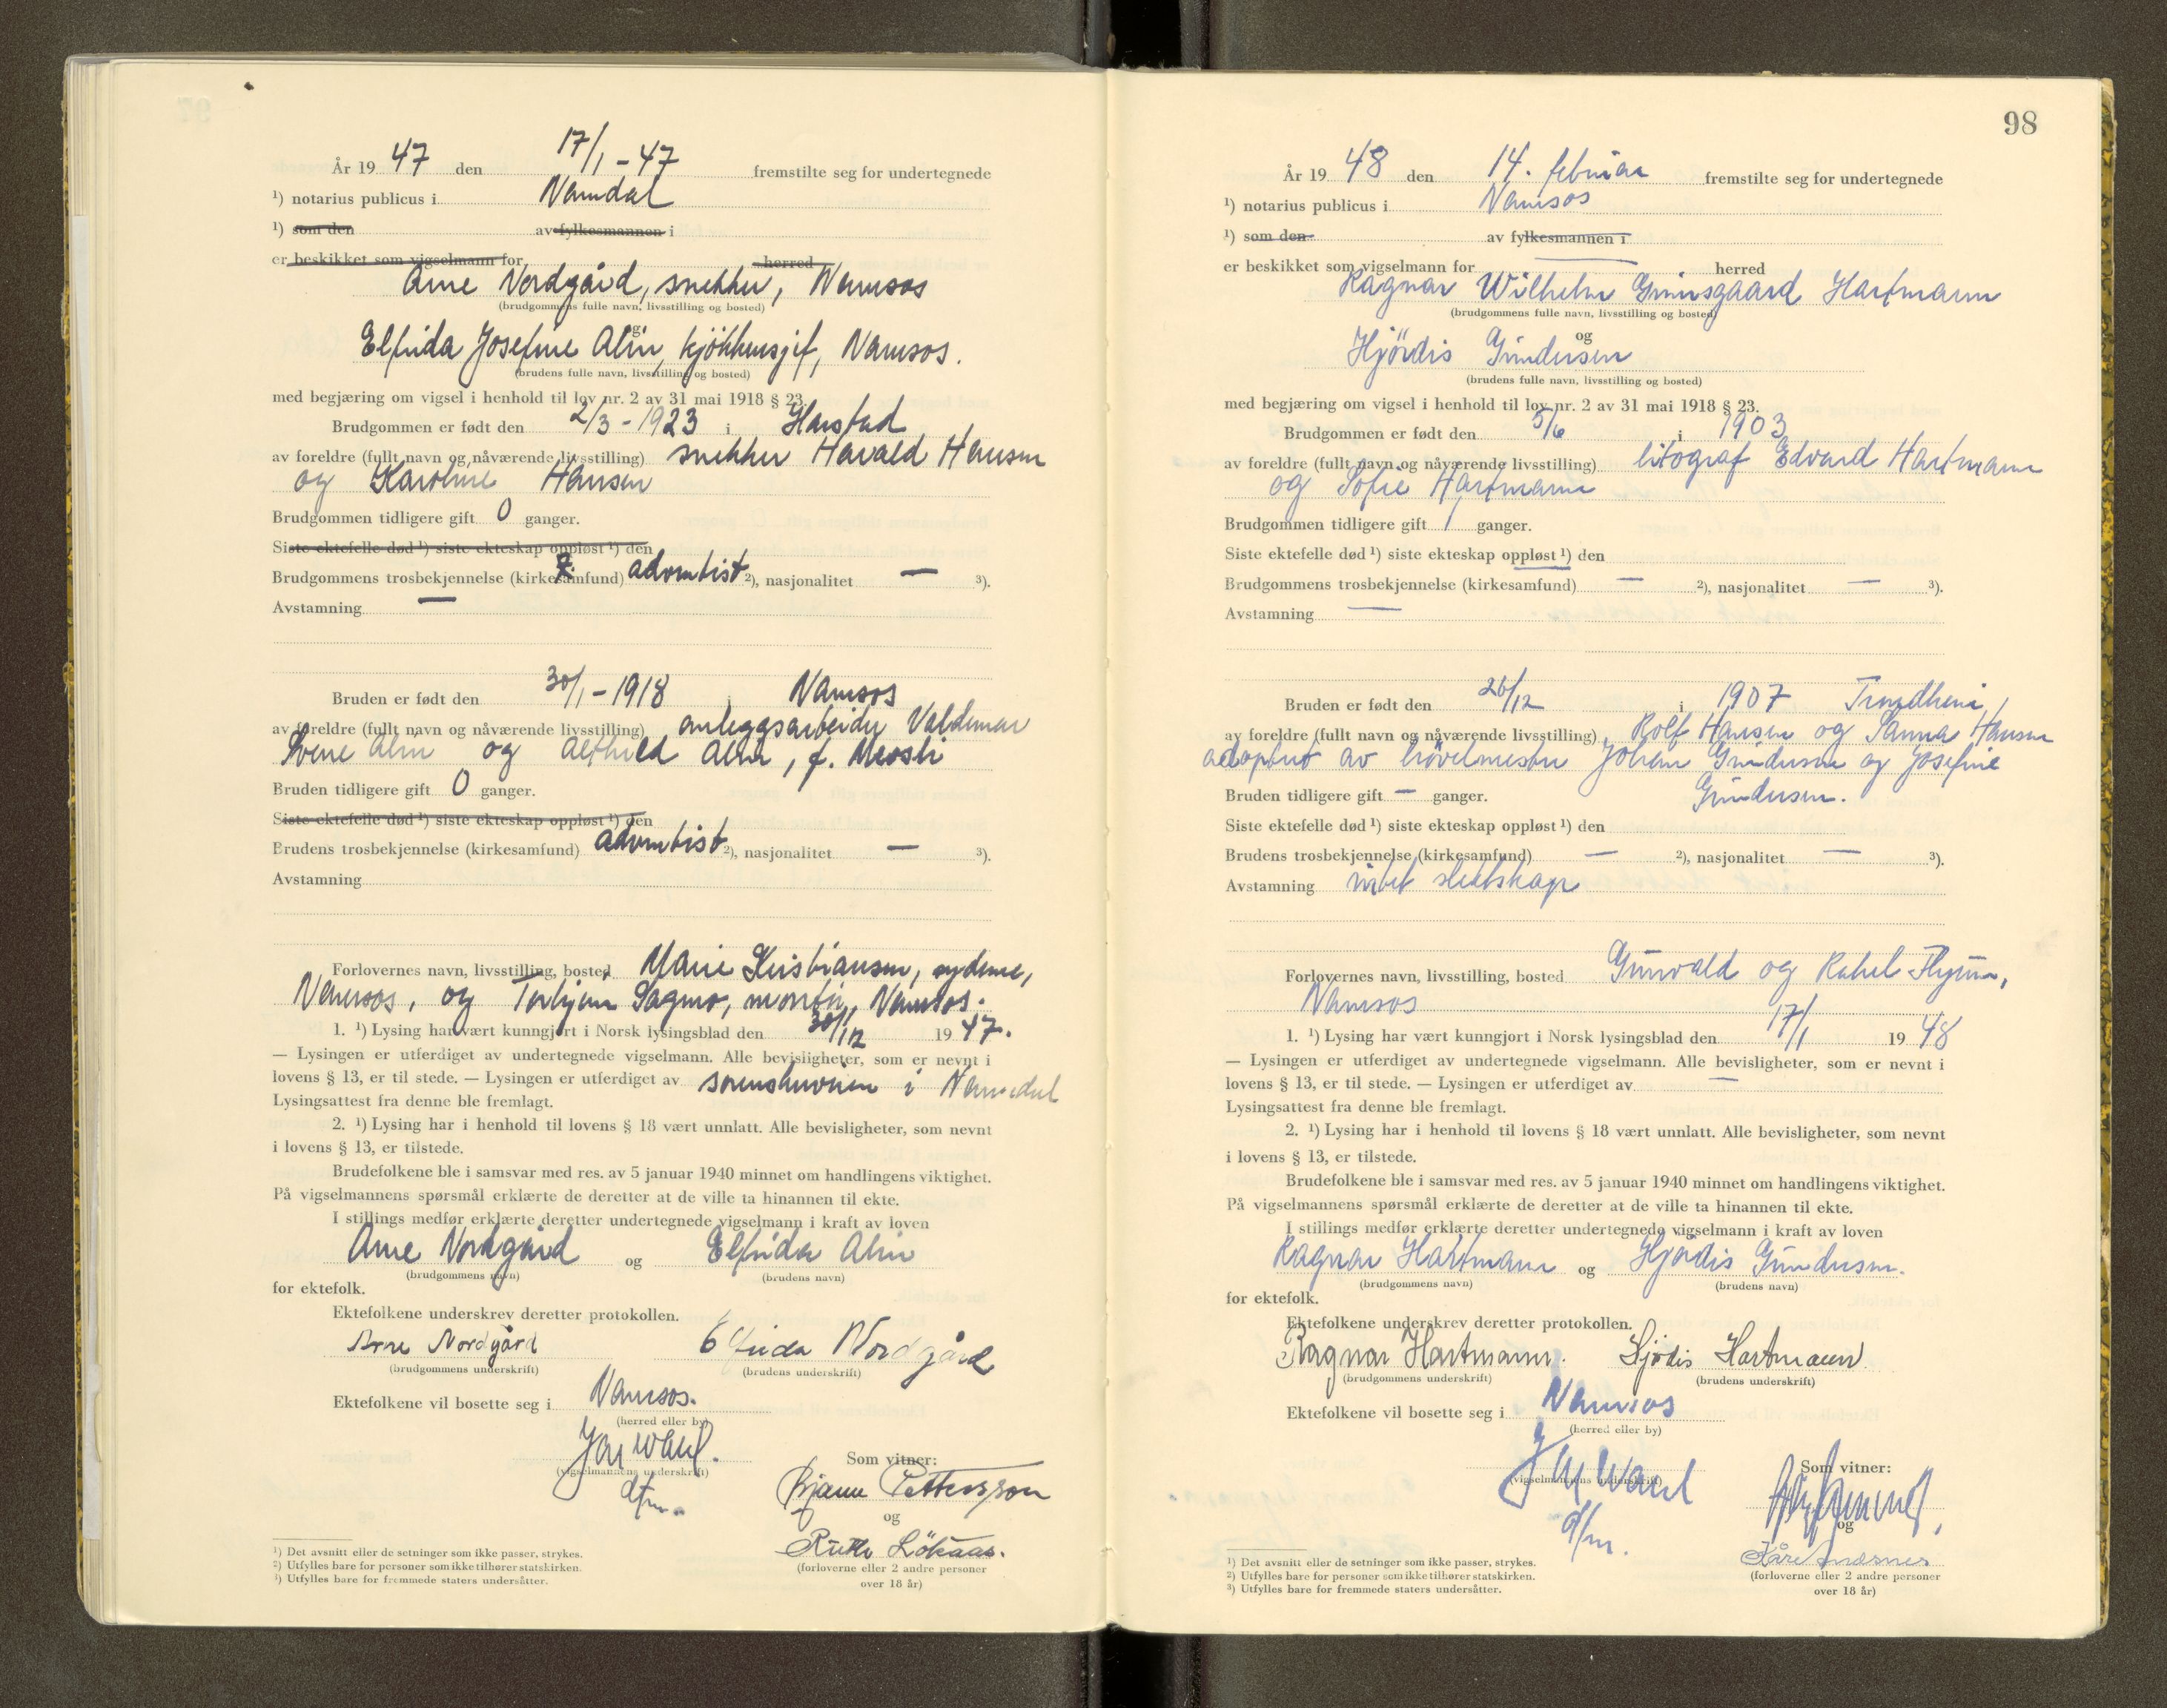 År 19 47 den 17/1 - 47 fremstilte seg for undertegnede
¹) notarius publicus i Namdal
¹) som den av fylkesmannen i
er beskikket som vigselmann for herred
Arne Nordgård, snekker, Namsos
(brudgommens fulle navn, livsstilling og bosted)
og
Elfrida Josefine Alm, kjøkkensjef, Namsos.
(brudens fulle navn, livsstilling og bosted)
med begjæring om vigsel i henhold til lov nr. 2 av 31 mai 1918 § 23.
Brudgommen er født den 2/3 - 1923 i Harstad
av foreldre (fullt navn og nåværende livsstilling) snekker Harald Hansen
og Karoline Hansen
Brudgommen tidligere gift 0 ganger.
Siste ektefelle død ¹) siste ekteskap oppløst ¹) den
Brudgommens trosbekjennelse (kirkesamfund) 7. adventist ²), nasjonalitet — ³).
Avstamning —
Bruden er født den 30/1 - 1918 i Namsos
av foreldre (fullt navn og nåværende livsstilling) anleggsarbeider Valdemar
Alm og Alm, f.
Bruden tidligere gift 0 ganger.
Siste ektefelle død ¹) siste ekteskap oppløst ¹) den
Brudens trosbekjennelse (kirkesamfund) adventist ²), nasjonalitet — ³).
Avstamning
Forlovernes navn, livsstilling, bosted Marie Kristiansen, sydame,
Namsos, og Torbjørn Sagmo, montør, Namsos.
1. ¹) Lysing har vært kunngjort i Norsk lysingsblad den 30/12 19 47.
— Lysingen er utferdiget av undertegnede vigselmann. Alle bevisligheter, som er nevnt i
lovens § 13, er til stede. — Lysingen er utferdiget av sorenskriveren i Namdal
Lysingsattest fra denne ble fremlagt.
2. ¹) Lysing har i henhold til lovens § 18 vært unnlatt. Alle bevisligheter, som nevnt
i lovens § 13, er tilstede.
Brudefolkene ble i samsvar med res. av 5 januar 1940 minnet om handlingens viktighet.
På vigselmannens spørsmål erklærte de deretter at de ville ta hinannen til ekte.
I stillings medfør erklærte deretter undertegnede vigselmann i kraft av loven
Arne Nordgård og Elfrida Alm
(brudgommens navn) (brudens navn)
for ektefolk.
Ektefolkene underskrev deretter protokollen.
Arne Nordgård Elfrida Nordgård
(brudgommens underskrift) (brudens underskrift)
Ektefolkene vil bosette seg i Namsos.
(herred eller by)
(vigselmannens underskrift)
dfm.
Som vitner:
Bjarne Pettersson
og
Ruth Lökaas.
(forloverne eller 2 andre personer
over 18 år)
¹) Det avsnitt eller de setninger som ikke passer, strykes.
²) Utfylles bare for personer som ikke tilhører statskirken.
³) Utfylles bare for fremmede staters undersåtter.
98
År 19 48 den 14. februar fremstilte seg for undertegnede
¹) notarius publicus i Namsos
¹) som den av fylkesmannen i
er beskikket som vigselmann for — herred
Ragnar Wilhelm Hartmann
(brudgommens fulle navn, livsstilling og bosted)
og
Hjördis Gundersen
(brudens fulle navn, livsstilling og bosted)
med begjæring om vigsel i henhold til lov nr. 2 av 31 mai 1918 § 23.
Brudgommen er født den 5/6 i 1903
av foreldre (fullt navn og nåværende livsstilling) litograf Edvard Hartmann
og Sofie Hartmann
Brudgommen tidligere gift 1 ganger.
Siste ektefelle død ¹) siste ekteskap oppløst ¹) den
Brudgommens trosbekjennelse (kirkesamfund) — ²), nasjonalitet — ³).
Avstamning —
Bruden er født den 26/12 i 1907 Trondheim,
av foreldre (fullt navn og nåværende livsstilling) Rolf Hansen og Sanna Hansen
adoptert av hövelmester Johan Gundersen og Josefine
Gundersen.
Bruden tidligere gift — ganger.
Siste ektefelle død ¹) siste ekteskap oppløst ¹) den
Brudens trosbekjennelse (kirkesamfund) — ²), nasjonalitet — ³).
Avstamning intet slektskap
Forlovernes navn, livsstilling, bosted Gunvald og Rakel
Namsos
1. ¹) Lysing har vært kunngjort i Norsk lysingsblad den 17/1 19 48
— Lysingen er utferdiget av undertegnede vigselmann. Alle bevisligheter, som er nevnt i
lovens § 13, er til stede. — Lysingen er utferdiget av —
Lysingsattest fra denne ble fremlagt.
2. ¹) Lysing har i henhold til lovens § 18 vært unnlatt. Alle bevisligheter, som nevnt
i lovens § 13, er tilstede.
Brudefolkene ble i samsvar med res. av 5 januar 1940 minnet om handlingens viktighet.
På vigselmannens spørsmål erklærte de deretter at de ville ta hinannen til ekte.
I stillings medfør erklærte deretter undertegnede vigselmann i kraft av loven
Ragnar Hartmann og Hjördis Gundersen.
(brudgommens navn) (brudens navn)
for ektefolk.
Ektefolkene underskrev deretter protokollen.
Ragnar Hartmann. Hjördis Hartmann
(brudgommens underskrift) (brudens underskrift)
Ektefolkene vil bosette seg i Namsos
(herred eller by)
(vigselmannens underskrift)
Som vitner:
og
Kåre
(forloverne eller 2 andre personer
over 18 år)
¹) Det avsnitt eller de setninger som ikke passer, strykes.
²) Utfylles bare for personer som ikke tilhører statskirken.
³) Utfylles bare for fremmede staters undersåtter.